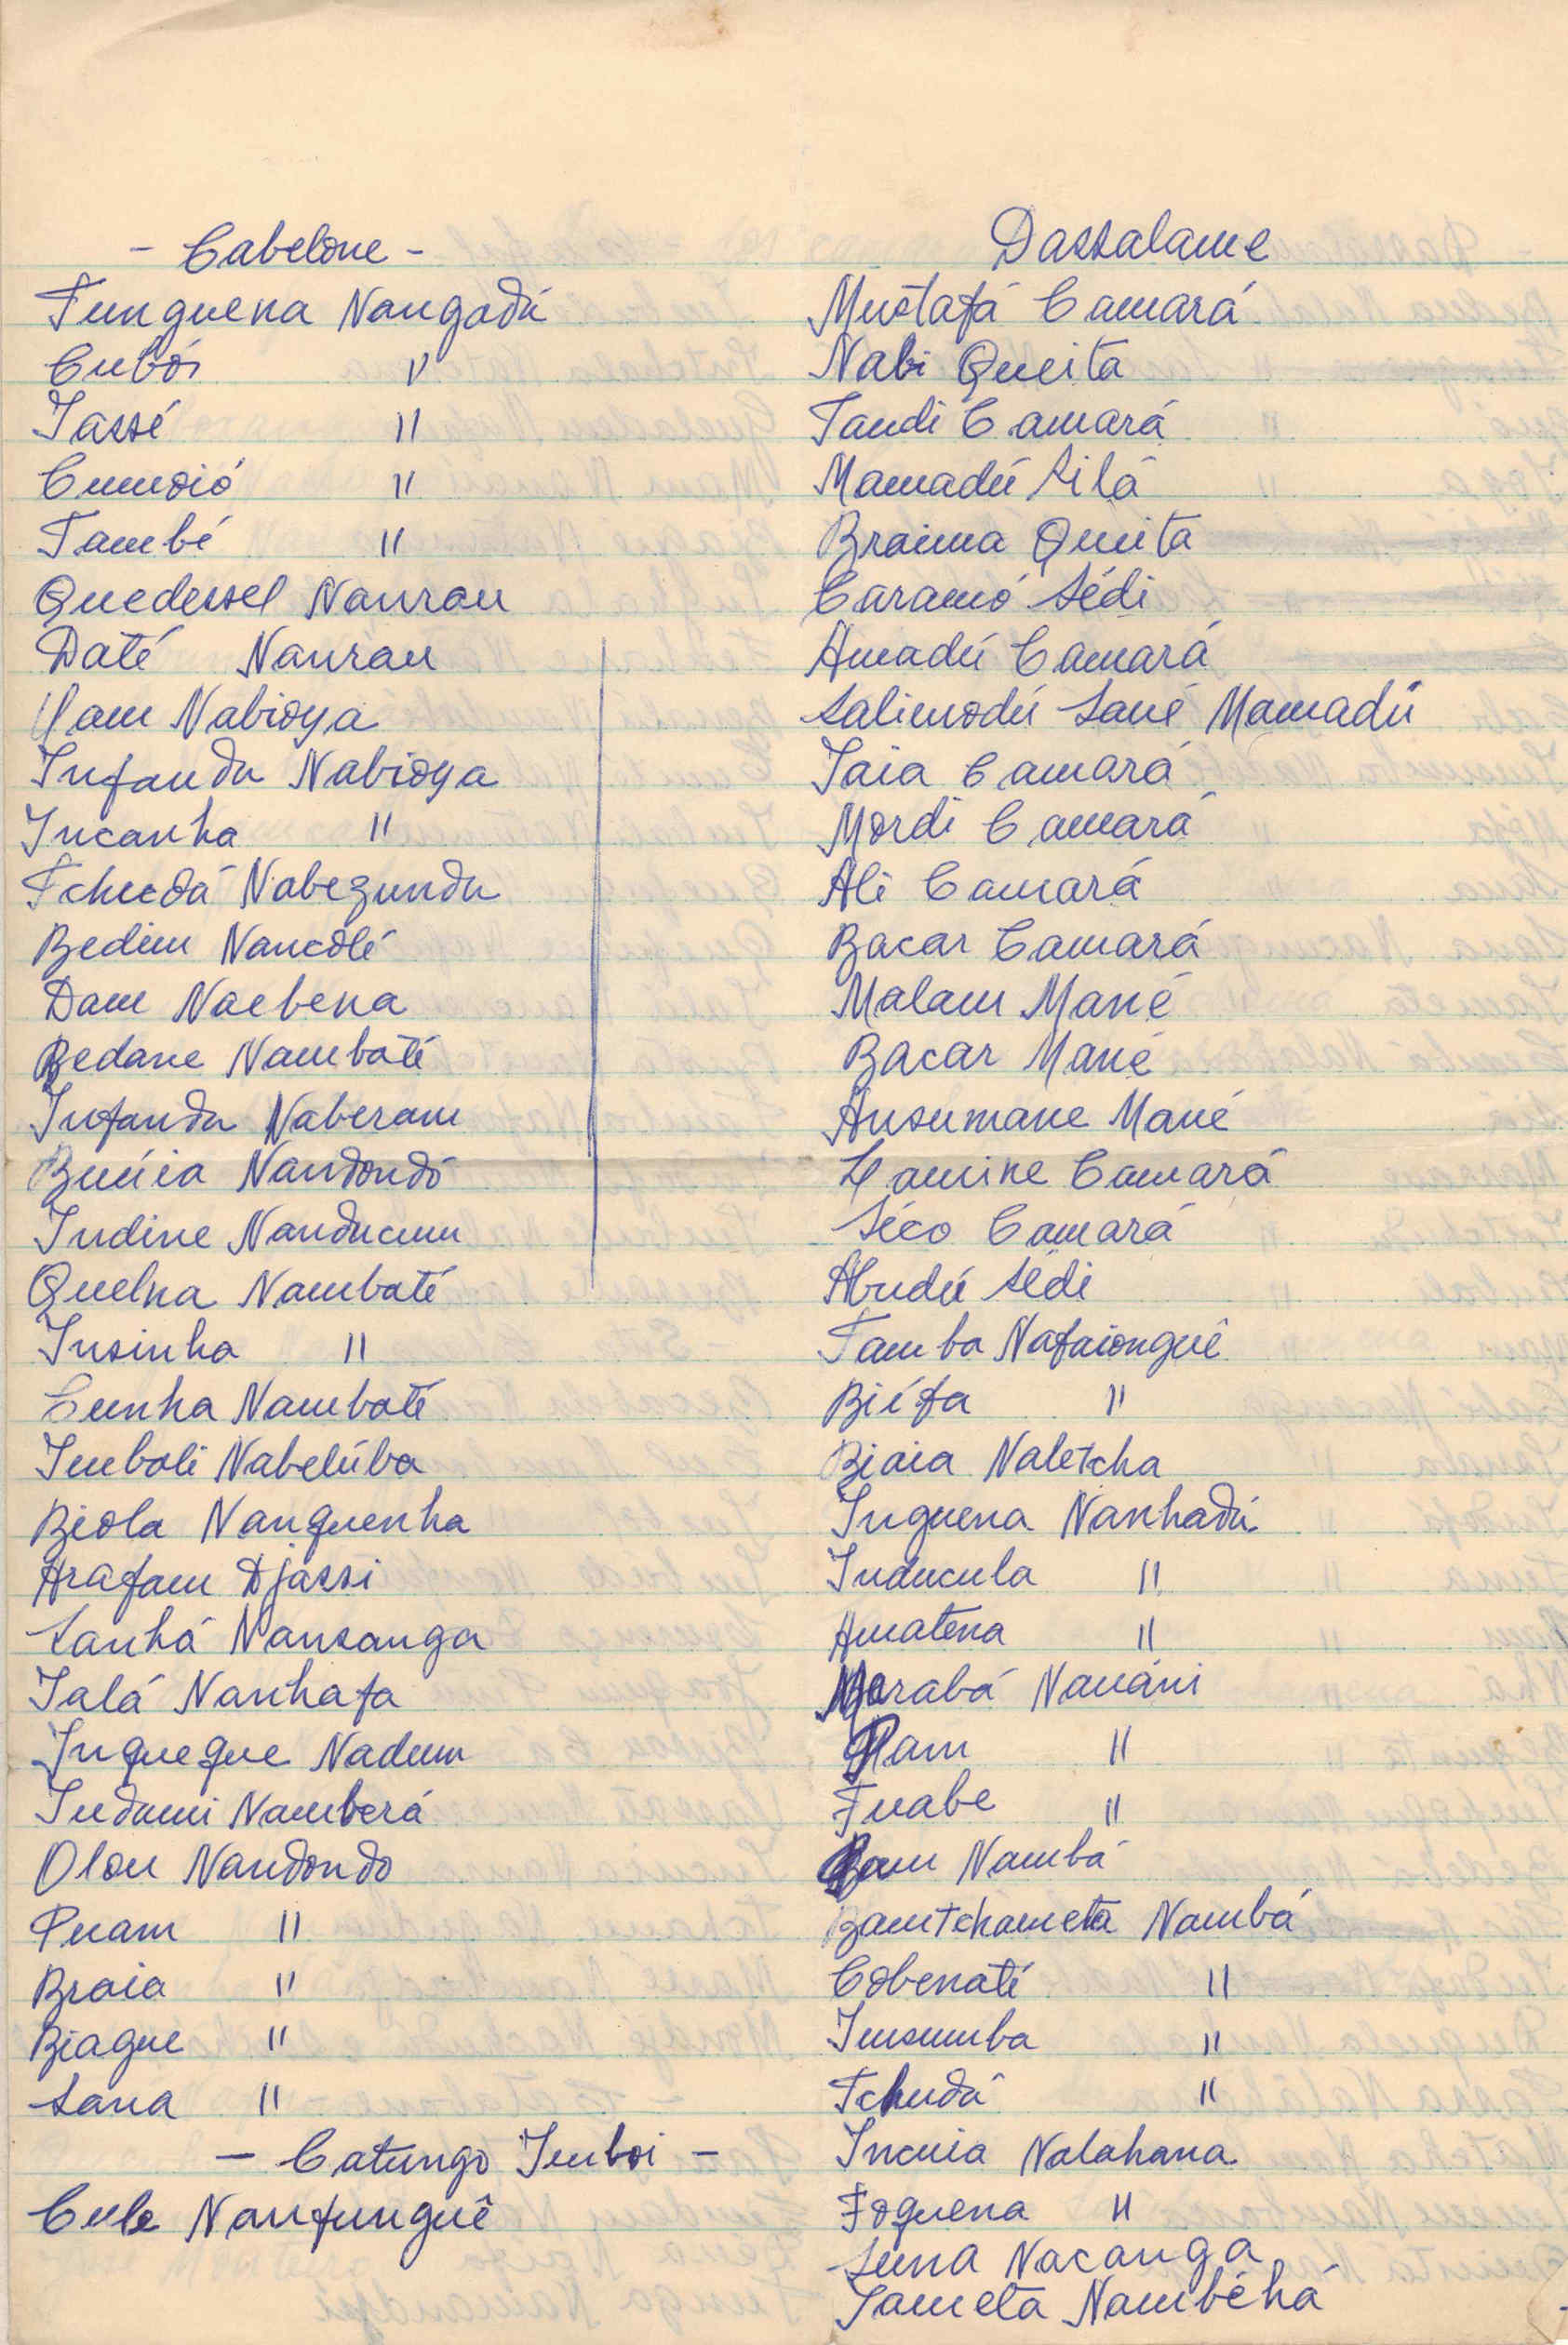 - Cabelone -
Funguena Nangadú
Cubói "
Iassé "
Cumoió "
També "
Quedessel Nanrau
Daté Nanrau
Yam Nabioya
Infanda Nabioya
Incanha "
Tchudá Nabezunda
Bedim Nancolé
Dam Naebena
Bedane Nambaté
Infanda Naberam
Buúia Nandondó
Indine Nanducum
Quelna Nambaté
Insinha "
Cunha Nambaté
Imbali Nabelúba
Biola Nanquenha
Arafam Djassi
Sanhá Nansanga
Ialá Nanhafa
Inqueque Nadum
Indami Namberá
Olou Nandondo
Puam "
Braia "
Biague "
Sana "
- Catungo Imboi -
Cule Nanfunguê
Dassalame
Mustafá Camará
Nabi Queita
Taudi Camará
Mamadú Silá
Braima Queita
Caramó Sédi
Amadú Camará
Salimodú Sané Mamadú
Iaia Camará
Mordi Camará
Ali Camará
Bacar Camará
Malam Mané
Bacar Mané
Ansumane Mané
Lamine Camará
Séco Camará
Abudú Sédi
Tamba Nafaionguê
Biéfa "
Biaia Naletcha
Inguena Nanhadú
Inducula "
Amatena "
Marabá Nauáni
Ram "
Fuabe "
Bam Nambá
Bamtchameta Nambá
Cobenaté "
Insumba "
Tchudá "
Incuia Nalahana
Foquena "
Suna Nacanga
Iameta Nambéhá